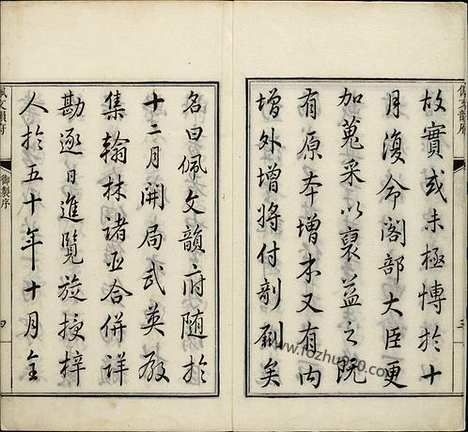 故實或未極博於十
月復命閣部大臣更
加蒐采以裒益之既
有原本增本又有內
增外增將付剞劂矣
名曰佩文韻府隨於
十二月開局武英殿
集翰林諸臣合併詳
勘逐日進覽旋授梓
人於五十年十月全
佩文韻府
御製序
四
www.fozhu920.com